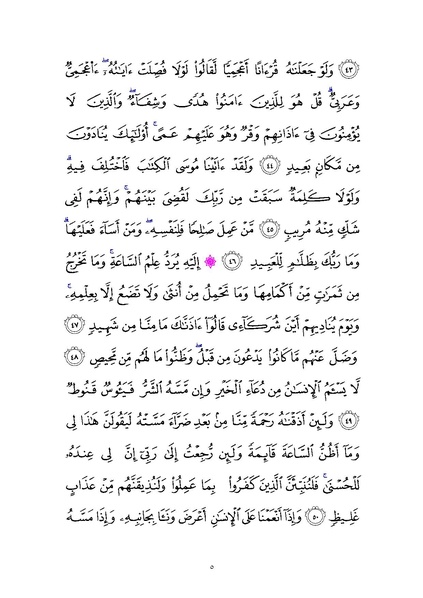 ﴿٤٣﴾ وَلَوْ جَعَلْنَٰهُ قُرْءَانًا أَعْجَمِيًّا لَّقَالُوا۟ لَوْلَا فُصِّلَتْ ءَايَٰتُهُۥٓ ۖ ءَا۬عْجَمِىٌّ
وَعَرَبِىٌّ ۗ قُلْ هُوَ لِلَّذِينَ ءَامَنُوا۟ هُدًى وَشِفَآءٌ ۖ وَٱلَّذِينَ لَا
يُؤْمِنُونَ فِىٓ ءَاذَانِهِمْ وَقْرٌ وَهُوَ عَلَيْهِمْ عَمًى ۚ أُو۟لَٰٓئِكَ يُنَادَوْنَ
مِن مَّكَانٍۭ بَعِيدٍ ﴿٤٤﴾ وَلَقَدْ ءَاتَيْنَا مُوسَى ٱلْكِتَٰبَ فَٱخْتُلِفَ فِيهِ ۗ
وَلَوْلَا كَلِمَةٌ سَبَقَتْ مِن رَّبِّكَ لَقُضِىَ بَيْنَهُمْ ۚ وَإِنَّهُمْ لَفِى
شَكٍّ مِّنْهُ مُرِيبٍ ﴿٤٥﴾ مَّنْ عَمِلَ صَٰلِحًا فَلِنَفْسِهِۦ ۖ وَمَنْ أَسَآءَ فَعَلَيْهَا ۗ
وَمَا رَبُّكَ بِظَلَّٰمٍ لِّلْعَبِيدِ ﴿٤٦﴾ ۞ إِلَيْهِ يُرَدُّ عِلْمُ ٱلسَّاعَةِ ۚ وَمَا تَخْرُجُ
مِن ثَمَرَٰتٍ مِّنْ أَكْمَامِهَا وَمَا تَحْمِلُ مِنْ أُنثَىٰ وَلَا تَضَعُ إِلَّا بِعِلْمِهِۦ ۚ
وَيَوْمَ يُنَادِيهِمْ أَيْنَ شُرَكَآءِى قَالُوٓا۟ ءَاذَنَّٰكَ مَا مِنَّا مِن شَهِيدٍ ﴿٤٧﴾
وَضَلَّ عَنْهُم مَّا كَانُوا۟ يَدْعُونَ مِن قَبْلُ ۖ وَظَنُّوا۟ مَا لَهُم مِّن مَّحِيصٍ ﴿٤٨﴾
لَّا يَسْـَٔمُ ٱلْإِنسَٰنُ مِن دُعَآءِ ٱلْخَيْرِ وَإِن مَّسَّهُ ٱلشَّرُّ فَيَـُٔوسٌ قَنُوطٌ
﴿٤٩﴾ وَلَئِنْ أَذَقْنَٰهُ رَحْمَةً مِّنَّا مِنۢ بَعْدِ ضَرَّآءَ مَسَّتْهُ لَيَقُولَنَّ هَٰذَا لِى
وَمَآ أَظُنُّ ٱلسَّاعَةَ قَآئِمَةً وَلَئِن رُّجِعْتُ إِلَىٰ رَبِّىٓ إِنَّ لِى عِندَهُۥ
لَلْحُسْنَىٰ ۚ فَلَنُنَبِّئَنَّ ٱلَّذِينَ كَفَرُوا۟ بِمَا عَمِلُوا۟ وَلَنُذِيقَنَّهُم مِّنْ عَذَابٍ
غَلِيظٍ ﴿٥٠﴾ وَإِذَآ أَنْعَمْنَا عَلَى ٱلْإِنسَٰنِ أَعْرَضَ وَنَـَٔا بِجَانِبِهِۦ وَإِذَا مَسَّهُ
٥